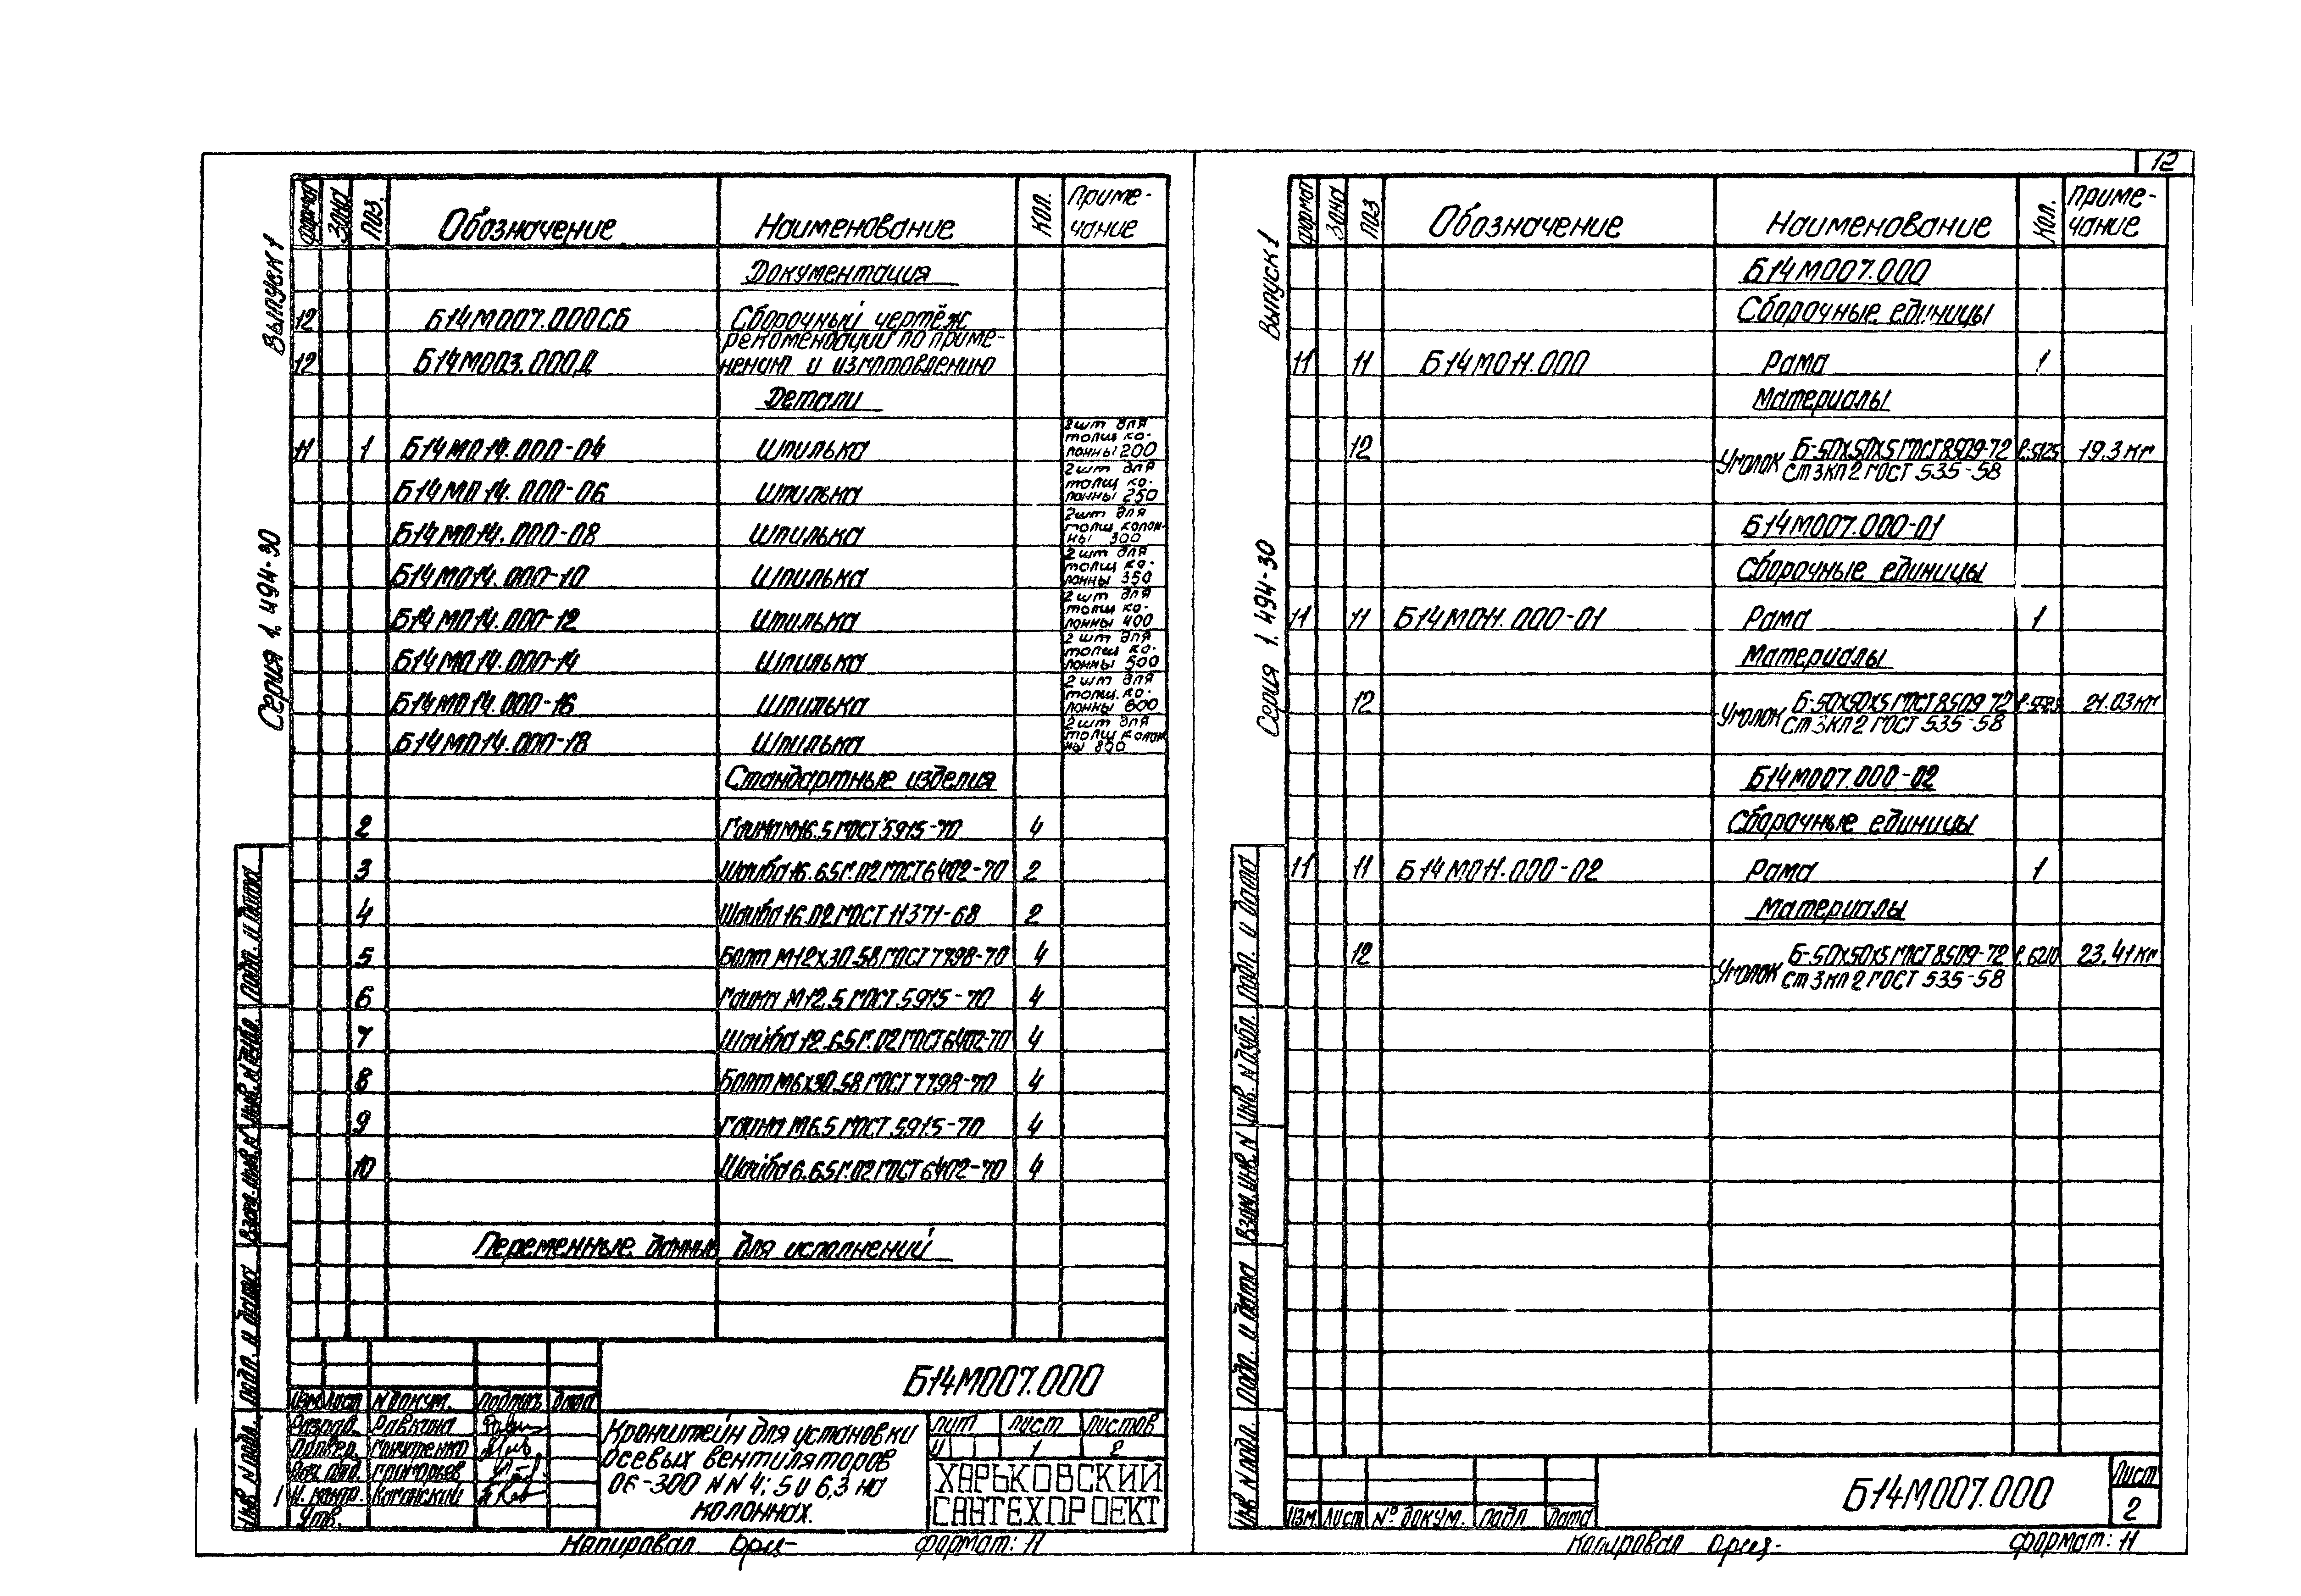 12
Выпуск 1
Серия 1.494-30
Формат Зона Поз. Обозначение Наименование Кол. Приме-
чание
Документация
12 Б14М007.000СБ Сборочный чертёж
рекомендации по приме-
12 Б14М003.000Д нению и изготовлению
Детали
11 1 Б14М014.000-04 Шпилька 2 шт для толщ ко-лонны 200
Б14М014.000-06 Шпилька 2 шт для толщ ко-лонны 250
Б14М014.000-08 Шпилька 2 шт для толщ колон-ны 300
Б14М014.000-10 Шпилька 2 шт для толщ ко-лонны 350
Б14М014.000-12 Шпилька 2 шт для толщ ко-лонны 400
Б14М014.000-14 Шпилька 2 шт для толщ ко-лонны 500
Б14М014.000-16 Шпилька 2 шт для толщ. ко-лонны 600
Б14М014.000-18 Шпилька 2 шт для толщ колон-ны 800
Стандартные изделия
2 Гайка М16.5 ГОСТ 5915-70 4
3 Шайба 16.65Г.02 ГОСТ 6402-70 2
4 Шайба 16.02 ГОСТ 11371-68 2
5 Болт М12х30.58 ГОСТ 7798-70 4
6 Гайка М12.5 ГОСТ 5915-70 4
7 Шайба 12.65Г.02 ГОСТ 6402-70 4
8 Болт М6х30.58 ГОСТ 7798-70 4
9 Гайка М6.5 ГОСТ 5915-70 4
10 Шайба 6.65Г.02 ГОСТ 6402-70 4
Переменные данные для исполнений
Б14М007.000
Изм Лист N докум. Подпись Дата
Разраб. Равкина
Провер.
Нач. отд. Григорьев
Н. контр. Каганский
Утв.
Кронштейн для установки
осевых вентиляторов
06-300 N N 4; 5 и 6,3 на
колоннах.
Лит Лист Листов
И 1 2
ХАРЬКОВСКИЙ
САНТЕХПРОЕКТ
Инв. N подл. Подп. и дата Взам. инв. N Инв. N дубл. Подп. и дата
1
Копировал Формат: 11
Выпуск 1
Серия 1.494-30
Формат Зона Поз Обозначение Наименование Кол. Приме-
чание
Б14М007.000
Сборочные единицы
11 11 Б14М011.000 Рама 1
Материалы
12 Уголок Б-50х50х5 ГОСТ 8509-72 ℓ.5125 19.3 кг
Ст3кп2 ГОСТ 535-58
Б14М007.000-01
Сборочные единицы
11 11 Б14М011.000-01 Рама 1
Материалы
12 Уголок Б-50х50х5 ГОСТ 8509-72 21.03 кг
Ст3кп2 ГОСТ 535-58
Б14М007.000-02
Сборочные единицы
11 11 Б14М011.000-02 Рама 1
Материалы
12 Уголок Б-50х50х5 ГОСТ 8509-72 ℓ.6210 23.41 кг
Ст3кп2 ГОСТ 535-58
Инв N подл. Подп. и дата Взам инв. N Инв. N дубл. Подп. и дата
Изм Лист № докум. Подп Дата
Б14М007.000
Лист
2
Копировал Формат: 11